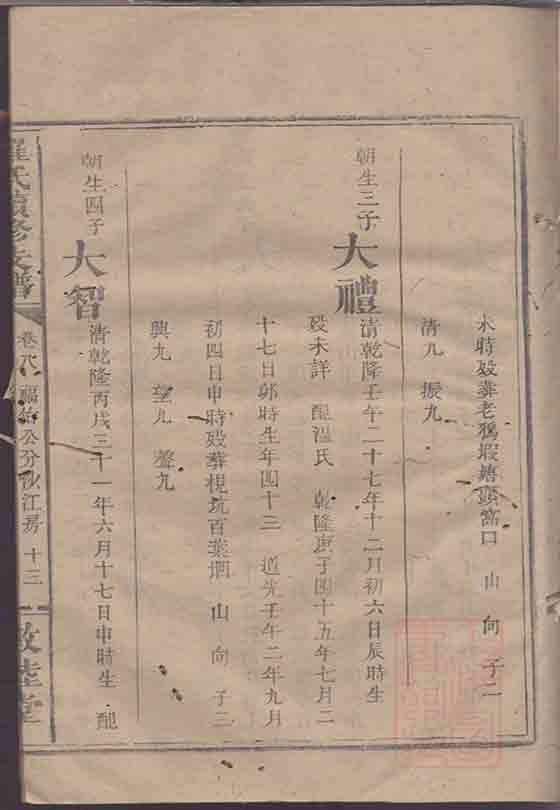 未時歿葬老鴉塅塘頭窩口 山 向 子二
清九 振九
朝生三子 大禮 清乾隆壬午二十七年十二月初六日辰時生
歿未詳 配溫氏 乾隆庚子四十五年七月二
十七日卯時生年四十三 道光壬午二年九月
初四日申時歿葬梘坑百葉 山 向 子二
興九 望九 聲九
朝生四子 大智 清乾隆丙戌三十一年六月十七日申時生 配
羅氏續修支譜 卷 福佑公分 江房 十三 敦睦堂